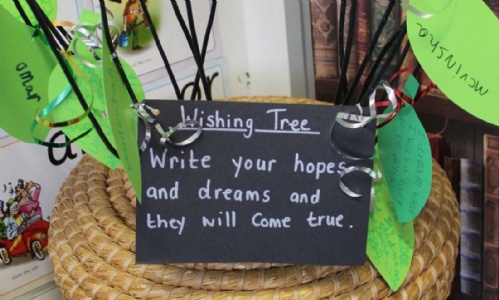 omar
mevinsha
Wishing Tree
Write your hopes
and dreams and
they will Come true.